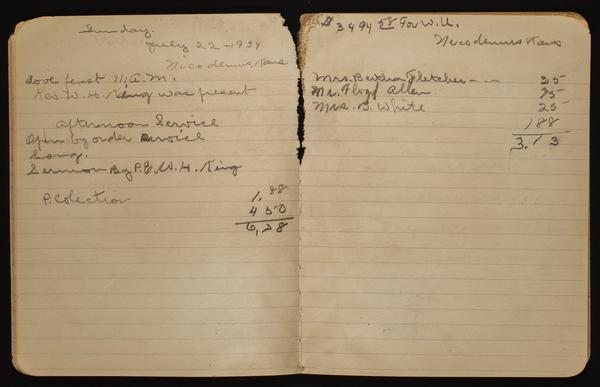 Sunday.
July 22-1934
Nicodemus Kans
Love feast 11, A.M.
Rev. W. H. King was present
Afternoon Service
Open by order Service
Song.
Sermon By P.E. W. H. King
P. Colection 1.88
4 50
6,38
$ 3494 58 For W.U.
Nicodemus Kans
Mrs. Bertha Fletcher - - 25
Mr. Floyd Allen 75
Mrs. B. White 25
188
3.13